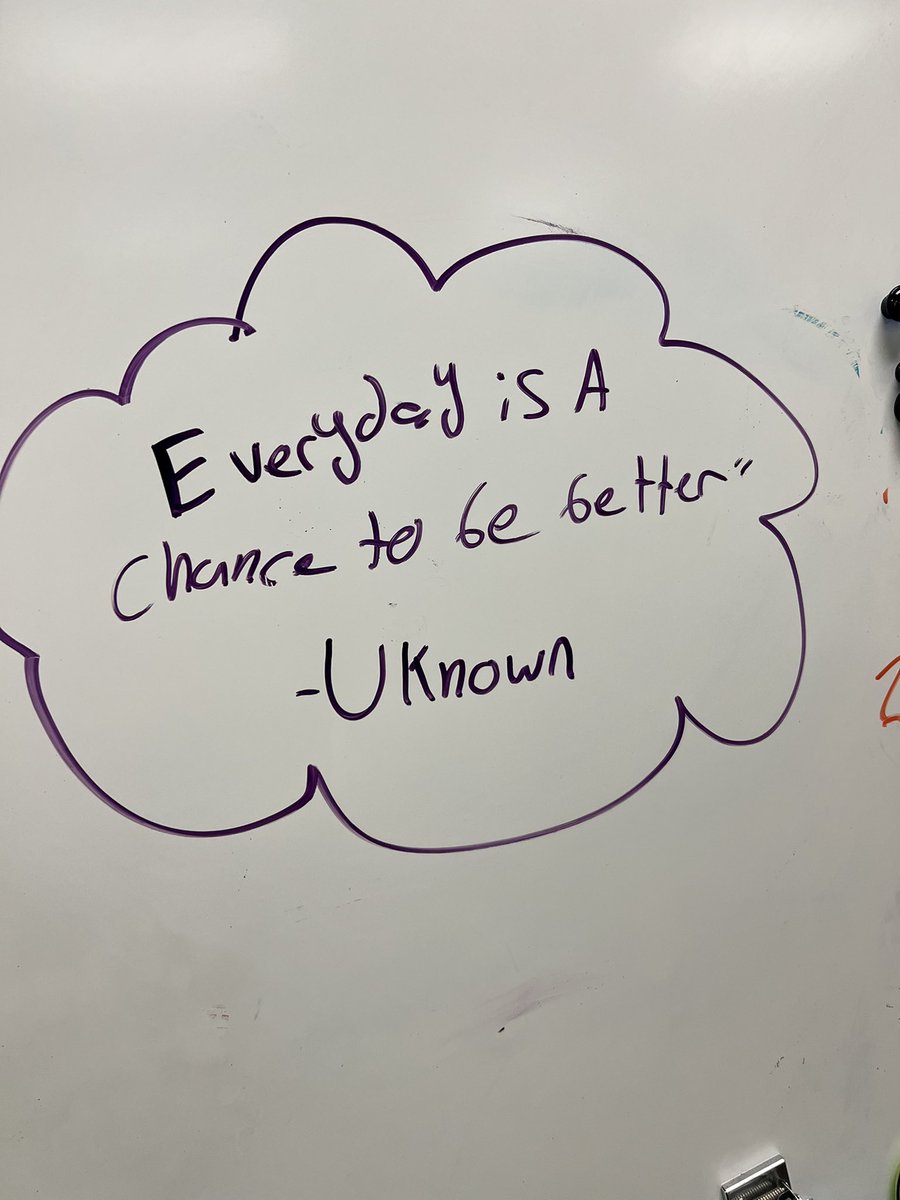 Everyday is A
chance to be better"
-UKnown